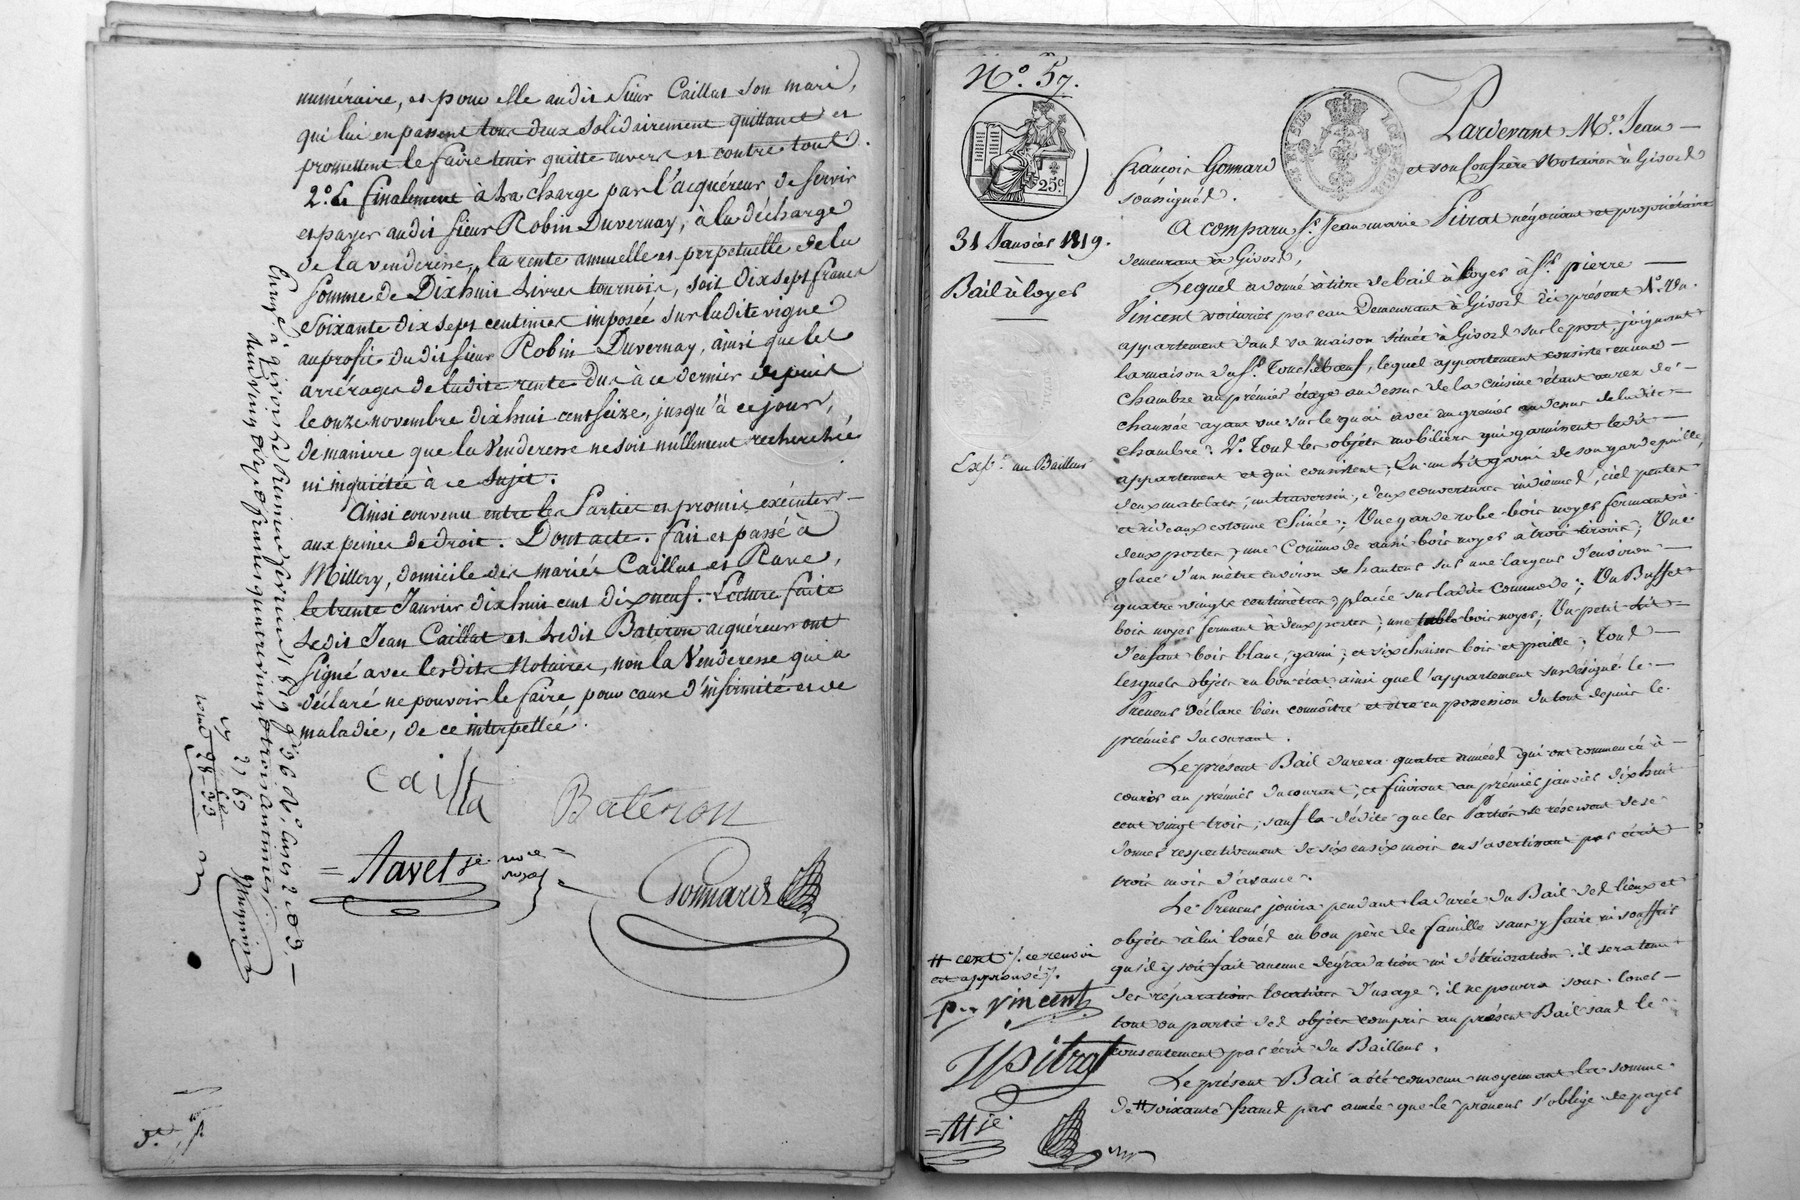 numéraire, et pour elle audit sieur Caillat son mari,
qui lui en passent tous deux solidairement quittance et
promettent le faire tenir quitte envers et contre tout.
2.° & finalement à la charge par l'acquéreur de servir
et payer audit sieur Robin Duvernay, à la décharge
de la venderesse, la rente annuelle et perpetuelle de la
somme de Dix huit Livres tournois, soit dix sept francs
soixante dix sept centimes imposée sur ladite vigne
au profit dudit sieur Robin Duvernay, ainsi que les
arrérages de ladite rente dus à ce dernier depuis
le onze novembre dix huit cent seize, jusqu'à ce jour,
de maniere que la Venderesse ne soit nullement recherchée
ni inquiétée à ce sujet.
Ainsi convenu entre les Parties et promis exécuter
aux peines de droit. Dont acte. fait et passé à
Millery, domicile des mariés Caillat et Rave,
le trente Janvier dix huit cent dix neuf. Lecture faite
Ledit Jean Caillat et Ledit Bateron acquéreur ont
signé avec lesdits Notaires, non la Venderesse qui a
déclaré ne pouvoir le faire pour cause d'infirmité et de
maladie, de ce interpellée.
Cailla
Bateron
= Navet je
Gonnard
N.° 57.
25 c
31 Janvier 1819.
Bail à loyer
Exp.on au Bailleur
Pardevant M.e Jean
françois Gonnard et son Confrère Notaires à Givors
soussignés.
A comparu S.r Jean marie Pitrat négociant et propriétaire
demeurant à Givors,
Lequel a donné à titre de bail à loyer à S.r pierre
Vincent voiturier par eau Demeurant à Givors ici présent 1.° Un
appartement dans sa maison située à Givors sur le port, joignant
la maison du S.r Touchebœuf, lequel appartement consiste en une
chambre au prémier étage au dessus de la cuisine étant au rez de
chaussée ayant vue sur le quai avec un grenier au dessus de ladite
chambre. 2.° Tous les objets mobiliers qui garnissent ledit
appartement et qui consistent; En un Lit garni de son garde paille,
deux matelats, un traversin, deux couvertures indienne, ciel pentes
et rideaux cotonne Chinée; Une garderobe bois noyer fermant à
deux portes; une Commode aussi bois noyer à trois tiroirs; Une
glace d'un mètre environ de hauteur sur une largeur d'environ
quatre vingts centimètres, placée sur ladite commode; Un Buffet
bois noyer fermant à deux portes; une table bois noyer; Un petit lit
d'enfant bois blanc, garni; et six chaises bois et paille; Tous
lesquels objets en bon état ainsi que l'appartement susdésigné le
Preneur déclare bien connoître et être en possession du tout depuis le
prémier du courant.
Le présent Bail durera quatre années qui ont commencé à
courir au prémier du courant, et finiront au prémier janvier dix huit
cent vingt trois, sauf la dédite que les Parties se réservent de se
donner respectivement de six en six mois en s'avertissant par écrit
trois mois d'avance.
Le Preneur jouira pendant la durée du Bail des lieux et
objets à lui loués en bon père de famille sans y faire ni souffrir
qu'il y soit fait aucune dégradation ni détérioration. il sera tenu
des réparations locatives d'usage; il ne pourra sous louer
tout ou partie des objets compris au présent Bail sans le
consentement par écrit du Bailleur.
Le présent Bail a été convenu moyennant la somme
de # soixante francs par année que le preneur s'oblige de payer
# cent /. ce renvoi
est approuvé /.
p.r Vincent
JPitrat
= N je